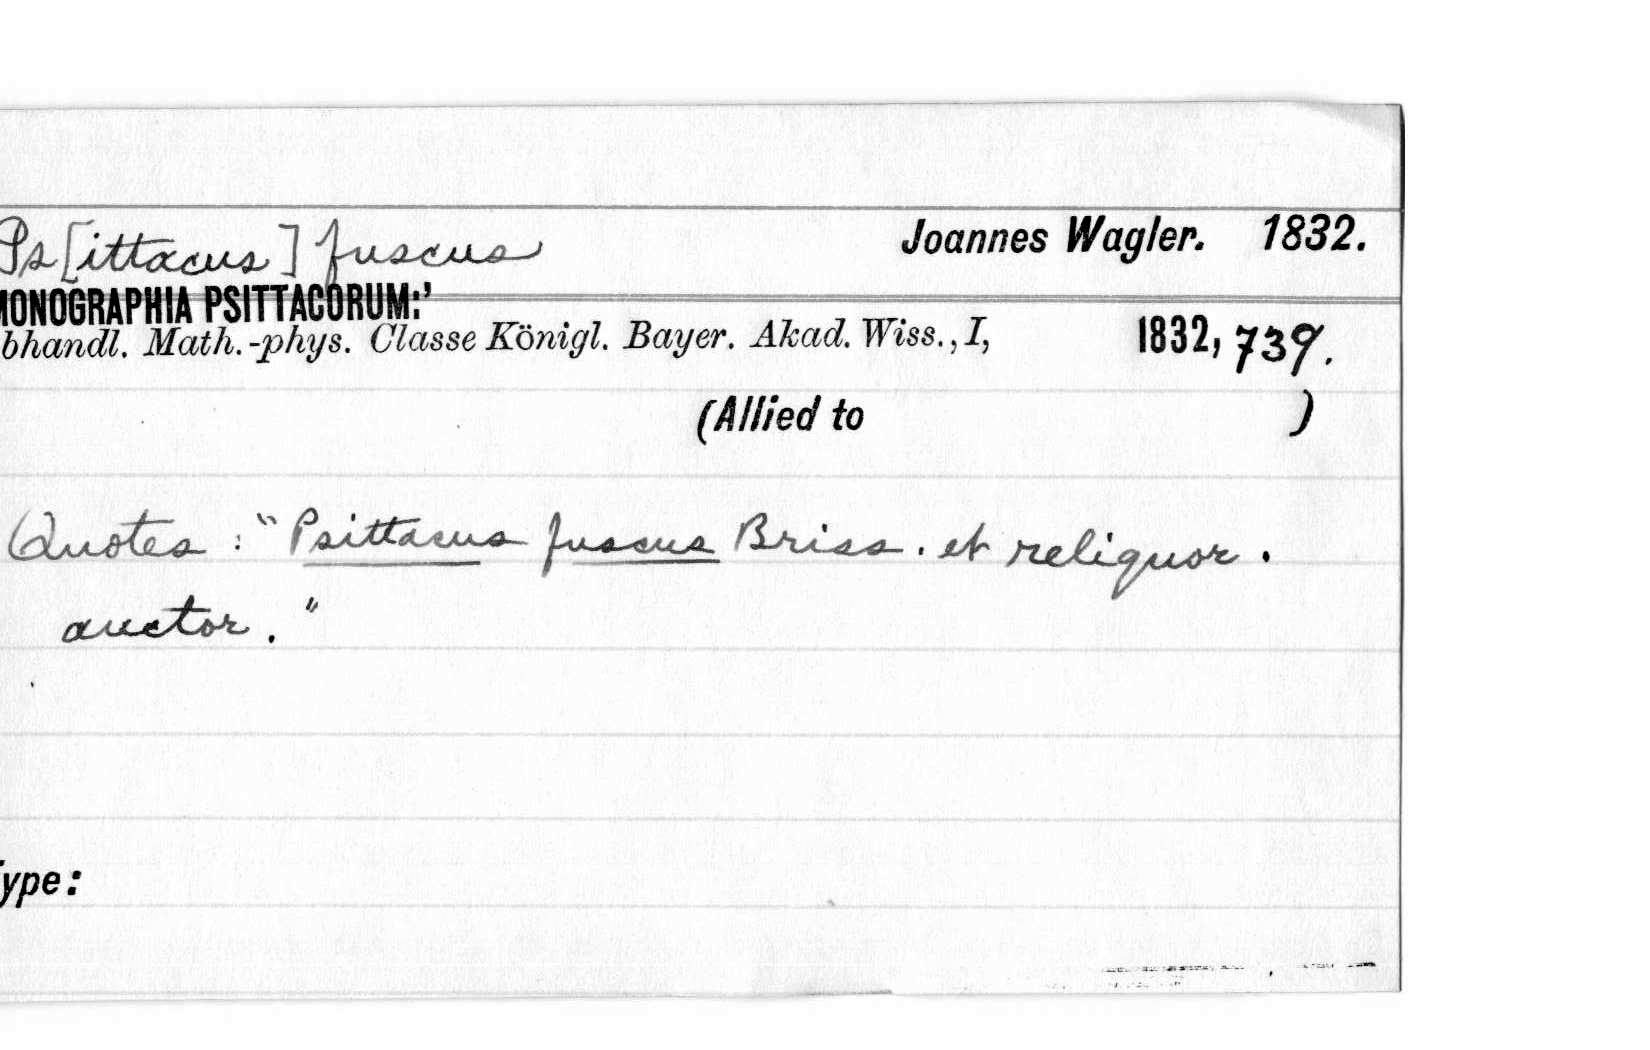 Ps[ittacus] fuscus Joannes Wagler. 1832.
MONOGRAPHIA PSITTACORUM:'
bhandl. Math.-phys. Classe Königl. Bayer. Akad. Wiss., I, 1832, 739.
(Allied to )
Quotes: "Psittacus fuscus Briss. et reliquor.
auctor."
ype: